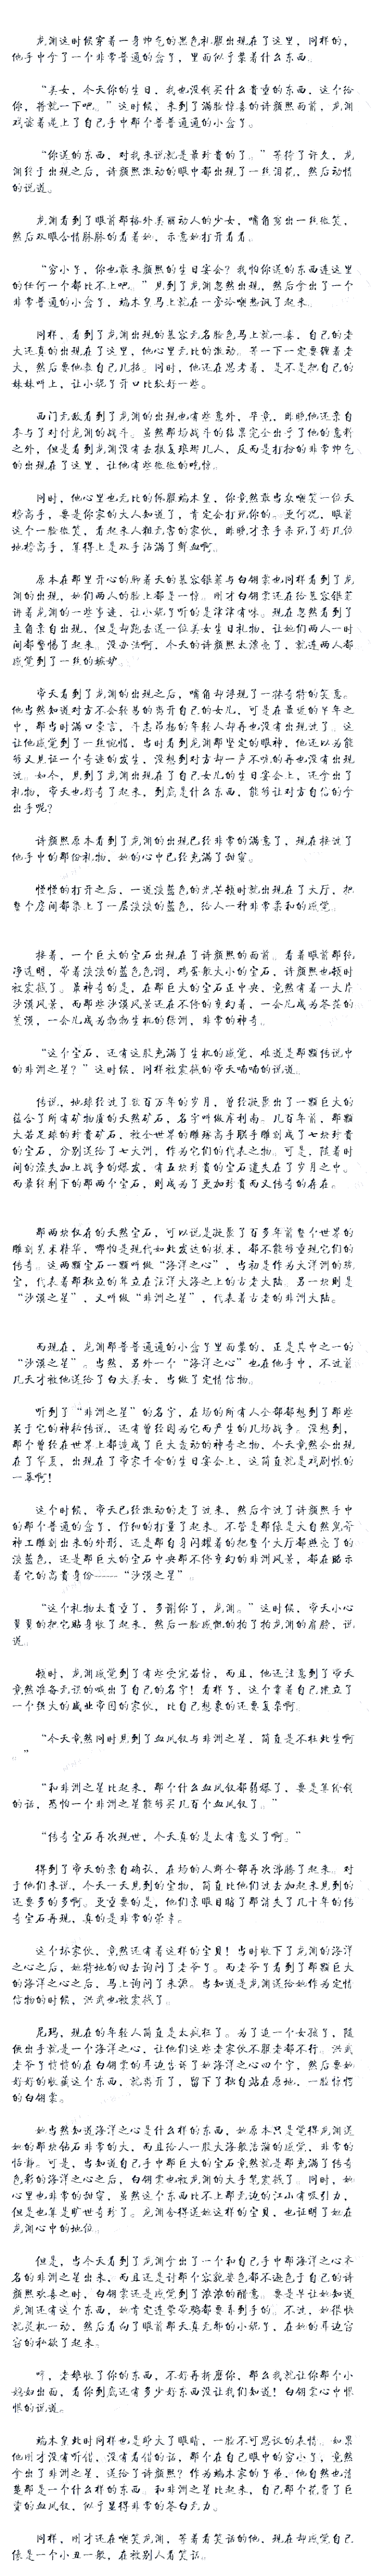 龙渊这时候穿着一身帅气的黑色礼服出现在了这里，同样的，
他手中拿了一个非常普通的盒子，里面似乎装着什么东西。
“美女，今天你的生日，我也没钱买什么贵重的东西，这个给
你，将就一下吧。”这时候，来到了满脸惊喜的许颜熙面前，龙渊
戏谑着递上了自己手中那个普普通通的小盒子。
“你送的东西，对我来说就是最珍贵的了。”等待了许久，龙
渊终于出现之后，许颜熙激动的眼中都出现了一丝泪花，然后动情
的说道。
龙渊看到了眼前那格外美丽动人的少女，嘴角露出一丝微笑，
然后双眼含情脉脉的看着她，示意她打开看看。
“穷小子，你也敢来颜熙的生日宴会？我怕你送的东西连这里
的任何一个都比不上吧。”见到了龙渊忽然出现，然后拿出了一个
非常普通的小盒子，端木皇马上就在一旁冷嘲热讽了起来。
同样，看到了龙渊出现的慕容无名脸色马上就一喜，自己的老
大还真的出现在了这里，他心里无比的激动。等一下一定要缠着老
大，然后要他教自己几招。同时，他还在思考着，是不是把自己的
妹妹叫上，让小妮子开口比较好一些。
西门无敌看到了龙渊的出现也有些意外，毕竟，昨晚他还亲自
参与了对付龙渊的战斗。虽然那场战斗的结果完全出乎了他的意料
之外，但是看到龙渊没有去报复琅琊几人，反而是打扮的非常帅气
的出现在了这里，让他有些微微的吃惊。
同时，他心里也无比的佩服端木皇，你竟然敢当众嘲笑一位天
榜高手，要是你家的大人知道了，肯定会打死你的。更何况，眼前
这个一脸微笑，看起来人畜无害的家伙，昨晚才亲手杀死了好几位
地榜高手，算得上是双手沾满了鲜血啊。
原本在那里开心的聊着天的慕容银萱与白翎裳也同样看到了龙
渊的出现，她们两人的脸上都是一愣。刚才白翎裳还在给慕容银萱
讲着龙渊的一些事迹，让小妮子听的是津津有味。现在忽然看到了
主角亲自出现，但是却跑去送一位美女生日礼物，让她们两人一时
间都警惕了起来。没办法啊，今天的许颜熙太漂亮了，就连两人都
感觉到了一丝的嫉妒。
帝天看到了龙渊的出现之后，嘴角却浮现了一抹奇特的笑意。
他当然知道对方不会轻易的离开自己的女儿，可是在最近的半年之
中，那当时满口豪言，斗志昂扬的年轻人却再也没有出现过了。这
让他感觉到了一丝惋惜，当时看到龙渊那坚定的眼神，他还以为能
够又见证一个奇迹的发生，没想到对方却一声不吭的再也没有出现
过。如今，见到了龙渊出现在了自己女儿的生日宴会上，还拿出了
礼物，帝天也好奇了起来，到底是什么东西，能够让对方自信的拿
出手呢？
许颜熙原本看到了龙渊的出现已经非常的满意了，现在接过了
他手中的那份礼物，她的心中已经充满了甜蜜。
慢慢的打开之后，一道淡蓝色的光芒顿时就出现在了大厅，把
整个房间都染上了一层淡淡的蓝色，给人一种非常柔和的感觉。
接着，一个巨大的宝石出现在了许颜熙的面前。看着眼前那纯
净透明，带着淡淡的蓝色色调，鸡蛋般大小的宝石，许颜熙也顿时
被震撼了。最神奇的是，在那巨大的宝石正中央，竟然有着一大片
沙漠风景，而那些沙漠风景还在不停的变幻着，一会儿成为苍茫的
荒漠，一会儿成为勃勃生机的绿洲，非常的神奇。
“这个宝石，还有这股充满了生机的感觉，难道是那颗传说中
的非洲之星？”这时候，同样被震撼的帝天喃喃的说道。
传说，地球经过了数百万年的岁月，曾经凝聚出了一颗巨大的
蕴含了所有矿物质的天然矿石，名字叫做库利南。几百年前，那颗
大若足球的珍贵矿石，被全世界的雕琢高手联手雕刻成了七块珍贵
的宝石，分别送给了七大洲，作为它们的代表之物。可是，随着时
间的流失加上战争的爆发，有五块珍贵的宝石遗失在了岁月之中。
而最终剩下的那两个宝石，则成为了更加珍贵而又传奇的存在。
那两块仅存的天然宝石，可以说是凝聚了百多年前整个世界的
雕刻艺术精华，哪怕是现代如此发达的技术，都不能够重现它们的
传奇。这两颗宝石一颗叫做“海洋之心”，当初是作为大洋洲的珠
宝，代表着那独立的耸立在汪洋大海之上的古老大陆。另一块则是
“沙漠之星”，又叫做“非洲之星”，代表着古老的非洲大陆。
而现在，龙渊那普普通通的小盒子里面装的，正是其中之一的
“沙漠之星”。当然，另外一个“海洋之心”也在他手中，不过前
几天才被他送给了白大美女，当做了定情信物。
听到了“非洲之星”的名字，在场的所有人全都都想到了那些
关于它的神秘传说，还有曾经因为它而产生的几场战争。没想到，
那个曾经在世界上都造成了巨大轰动的神奇之物，今天竟然会出现
在了华夏，出现在了帝家千金的生日宴会上，这简直就是戏剧性的
一幕啊！
这个时候，帝天已经激动的走了过来，然后拿过了许颜熙手中
的那个普通的盒子，仔细的打量了起来。不管是那像是大自然鬼斧
神工雕刻出来的外形，还是那自身闪耀着的把整个大厅都照亮了的
淡蓝色，还是那巨大的宝石中央那不停变幻的非洲风景，都在昭示
着它的高贵身份-----“沙漠之星”。
“这个礼物太贵重了，多谢你了，龙渊。”这时候，帝天小心
翼翼的把它贴身收了起来，然后一脸感慨的拍了拍龙渊的肩膀，说
道。
顿时，龙渊感觉到了有些受宠若惊，而且，他还注意到了帝天
竟然准备无误的喊出了自己的名字！看样子，这个靠着自己建立了
一个强大的商业帝国的家伙，比自己想象的还要复杂啊。
“今天竟然同时见到了血凤钗与非洲之星，简直是不枉此生啊
。”
“和非洲之星比起来，那个什么血凤钗都弱爆了，要是算价钱
的话，恐怕一个非洲之星能够买几百个血凤钗了。”
“传奇宝石再次现世，今天真的是太有意义了啊。”
得到了帝天的亲自确认，在场的人群全部再次沸腾了起来。对
于他们来说，今天一天见到的宝物，简直比他们过去加起来见到的
还要多的多啊。更重要的是，他们亲眼目睹了那消失了几十年的传
奇宝石再现，真的是非常的荣幸。
这个坏家伙，竟然还有着这样的宝贝！当时收下了龙渊的海洋
之心之后，她特地的回去询问了老爷子。而老爷子看到了那颗巨大
的海洋之心之后，马上询问了来源。当知道是龙渊送给她作为定情
信物的时候，洪武也被震撼了。
尼玛，现在的年轻人简直是太疯狂了。为了追一个女孩子，随
便出手就是一个海洋之心，让他们这些老家伙不服老都不行。洪武
老爷子愤愤的在白翎裳的耳边告诉了她海洋之心四个字，然后要她
好好的收藏这个东西，就离开了，留下了独自站在原地，一脸惊愕
的白翎裳。
她当然知道海洋之心是什么样的东西，她原本只是觉得龙渊送
她的那块钻石非常的大，而且给人一股大海般浩瀚的感觉，非常的
恬静。可是，当知道自己手中那巨大的宝石竟然就是那充满了传奇
色彩的海洋之心之后，白翎裳也被龙渊的大手笔震撼了。同时，她
心里也非常的甜蜜，虽然这个东西比不上那无边的江山有吸引力，
但是也算是旷世奇珍了。龙渊舍得送她这样的宝贝，也证明了她在
龙渊心中的地位。
但是，当今天看到了龙渊拿出了一个和自己手中那海洋之心齐
名的非洲之星出来，而且还是讨那个容貌姿色都不逊色于自己的许
颜熙欢喜之时，白翎裳还是感觉到了浓浓的醋意。要是早让她知道
龙渊还有这个东西，她肯定连蒙带骗都要弄到手的。不过，她很快
就灵机一动，然后看向了眼前那天真无邪的小妮子，在她的耳边窃
窃的私欲了起来。
哼，老娘收了你的东西，不好再折磨你，那么我就让你那个小
媳妇出面，看你到底还有多少好东西没让我们知道！白翎裳心中恨
恨的说道。
端木皇此时同样也是睁大了眼睛，一脸不可思议的表情。如果
他刚才没有听错，没有看错的话，那个在自己眼中的穷小子，竟然
拿出了非洲之星，送给了许颜熙？作为端木家的子弟，他自然也清
楚那是一个什么样的东西。和非洲之星比起来，自己那个花费了巨
资的血凤钗，似乎显得非常的苍白无力。
同样，刚才还在嘲笑龙渊，等着看笑话的他，现在却感觉自己
像是一个小丑一般，在被别人看笑话。